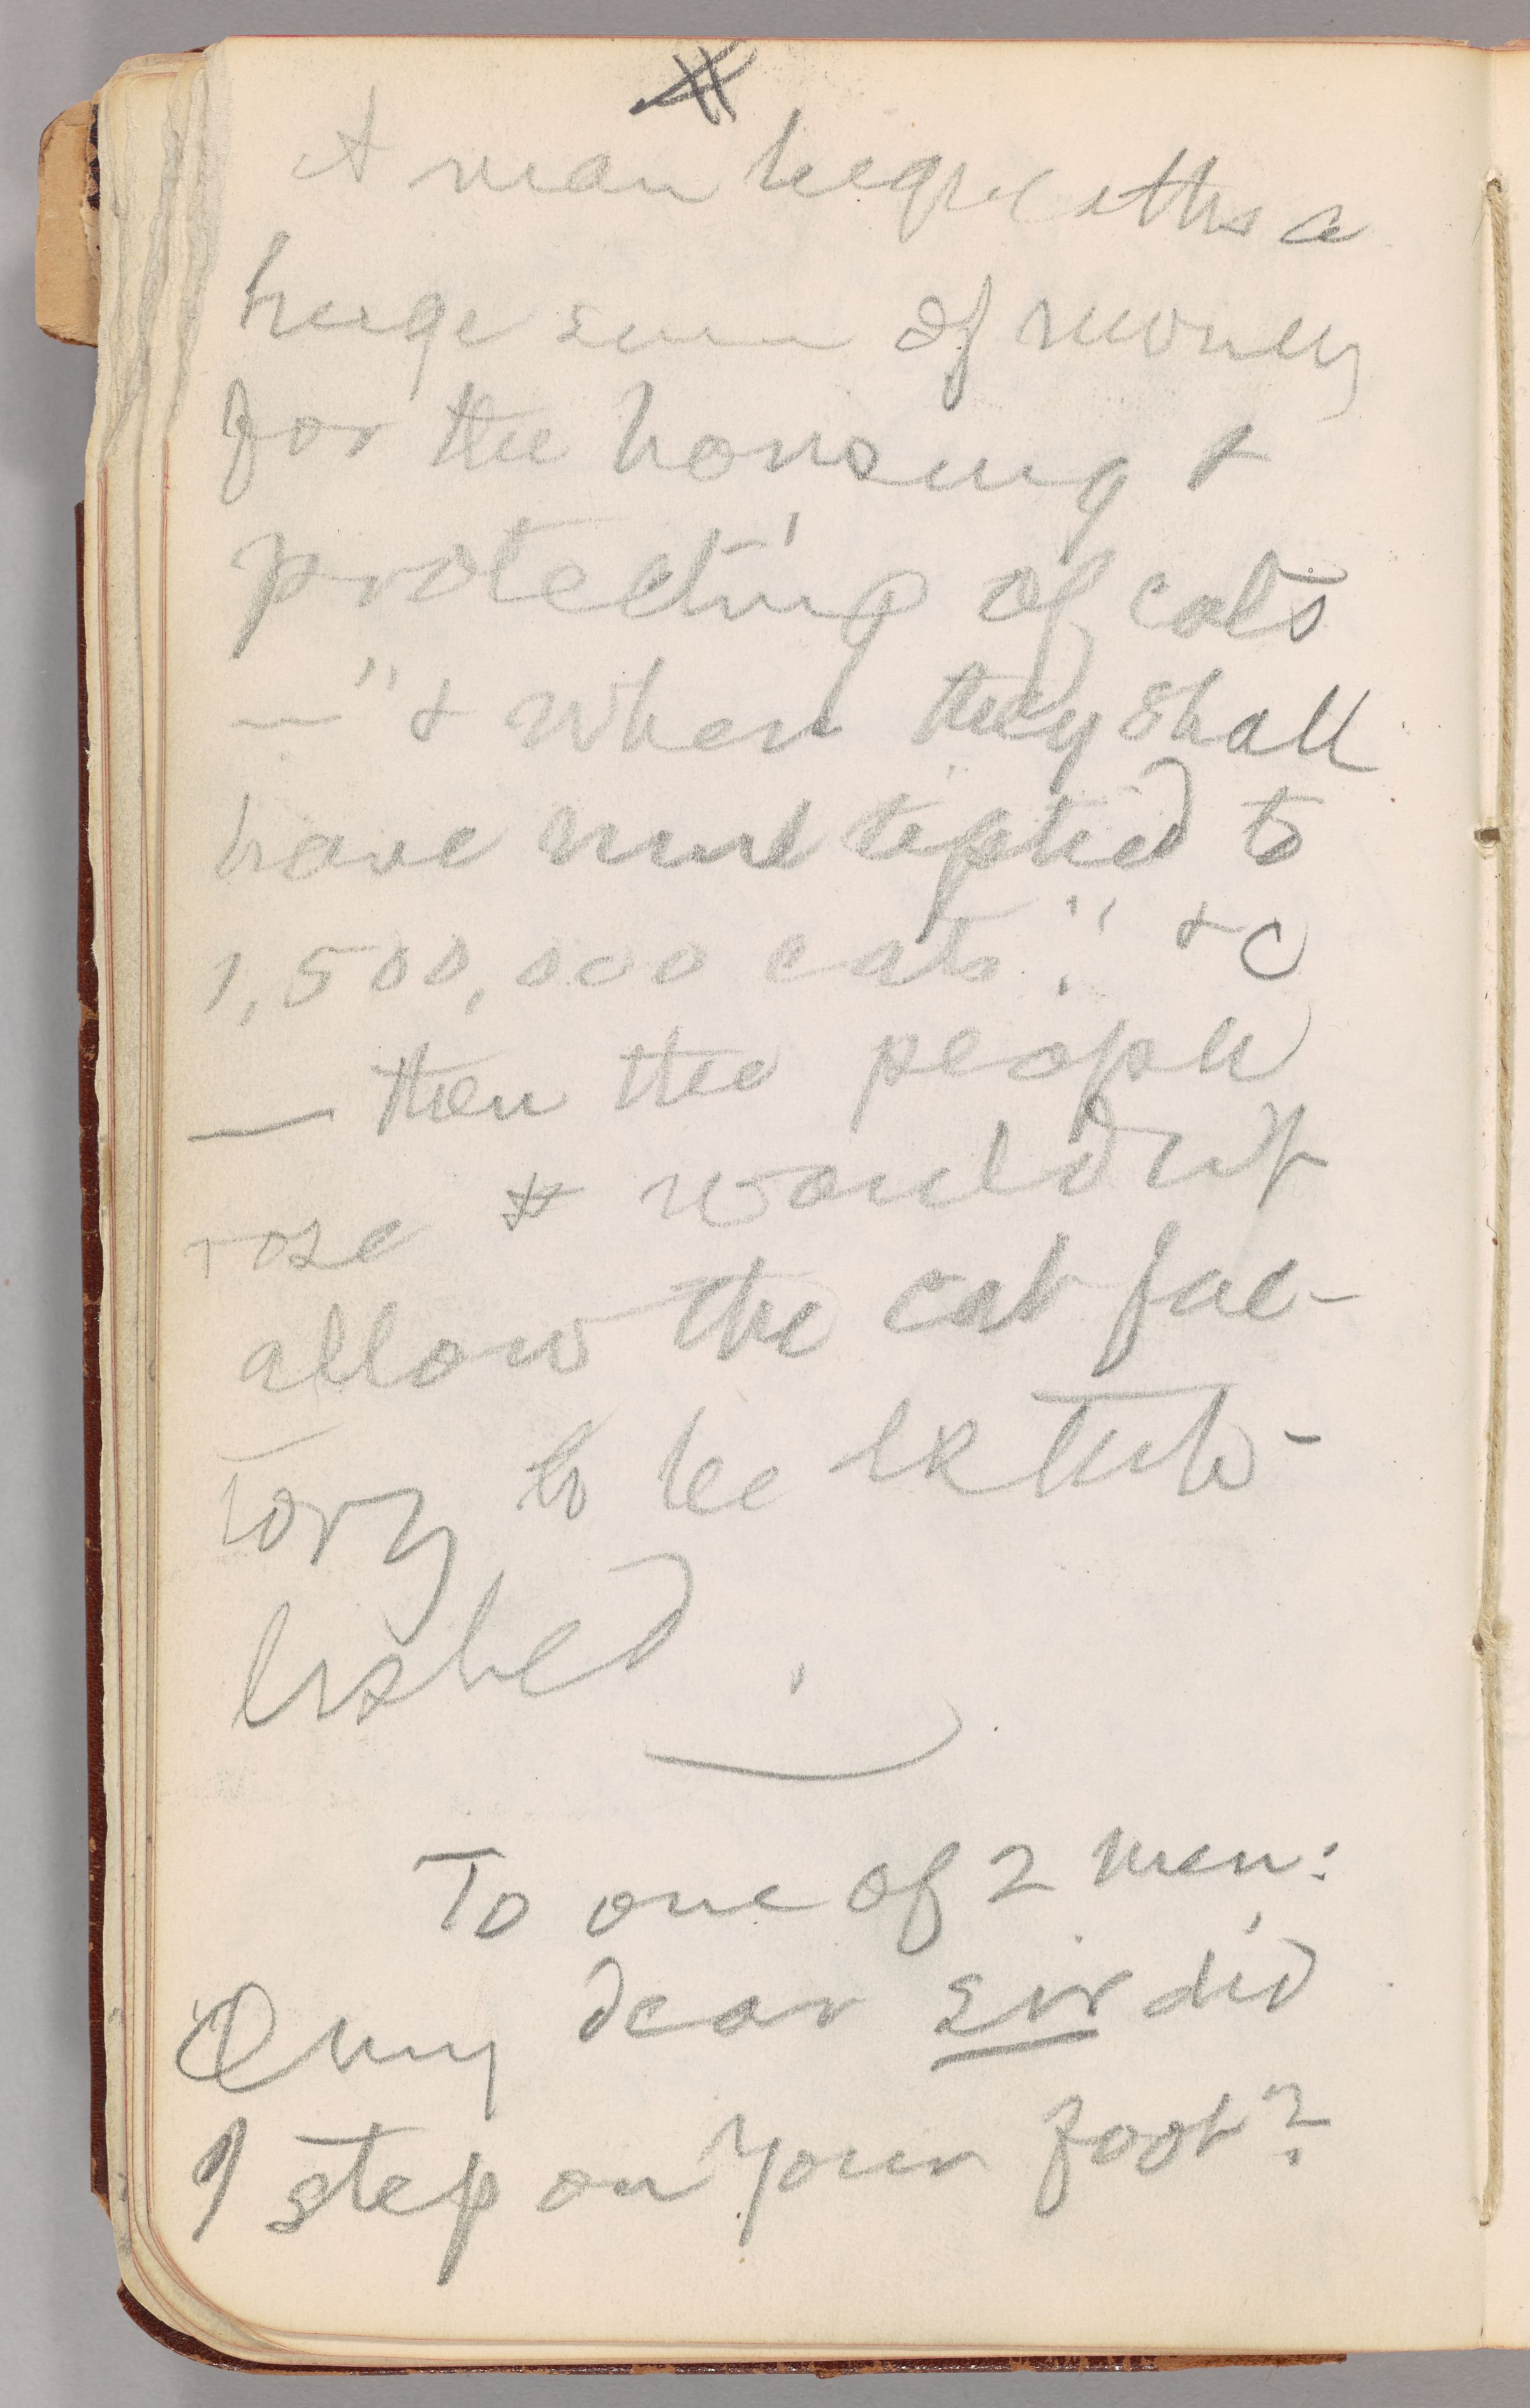 A man bequeaths a
huge sum of money
for the housing &
protecting of cats
— "& when they shall
have multiplied to
1,500,000 cats." &c
— then the people
rose & wouldn't
allow the cat fac-
tory to be estab-
lished.
To one of 2 men:
O my dear sir did
I step on your foot?